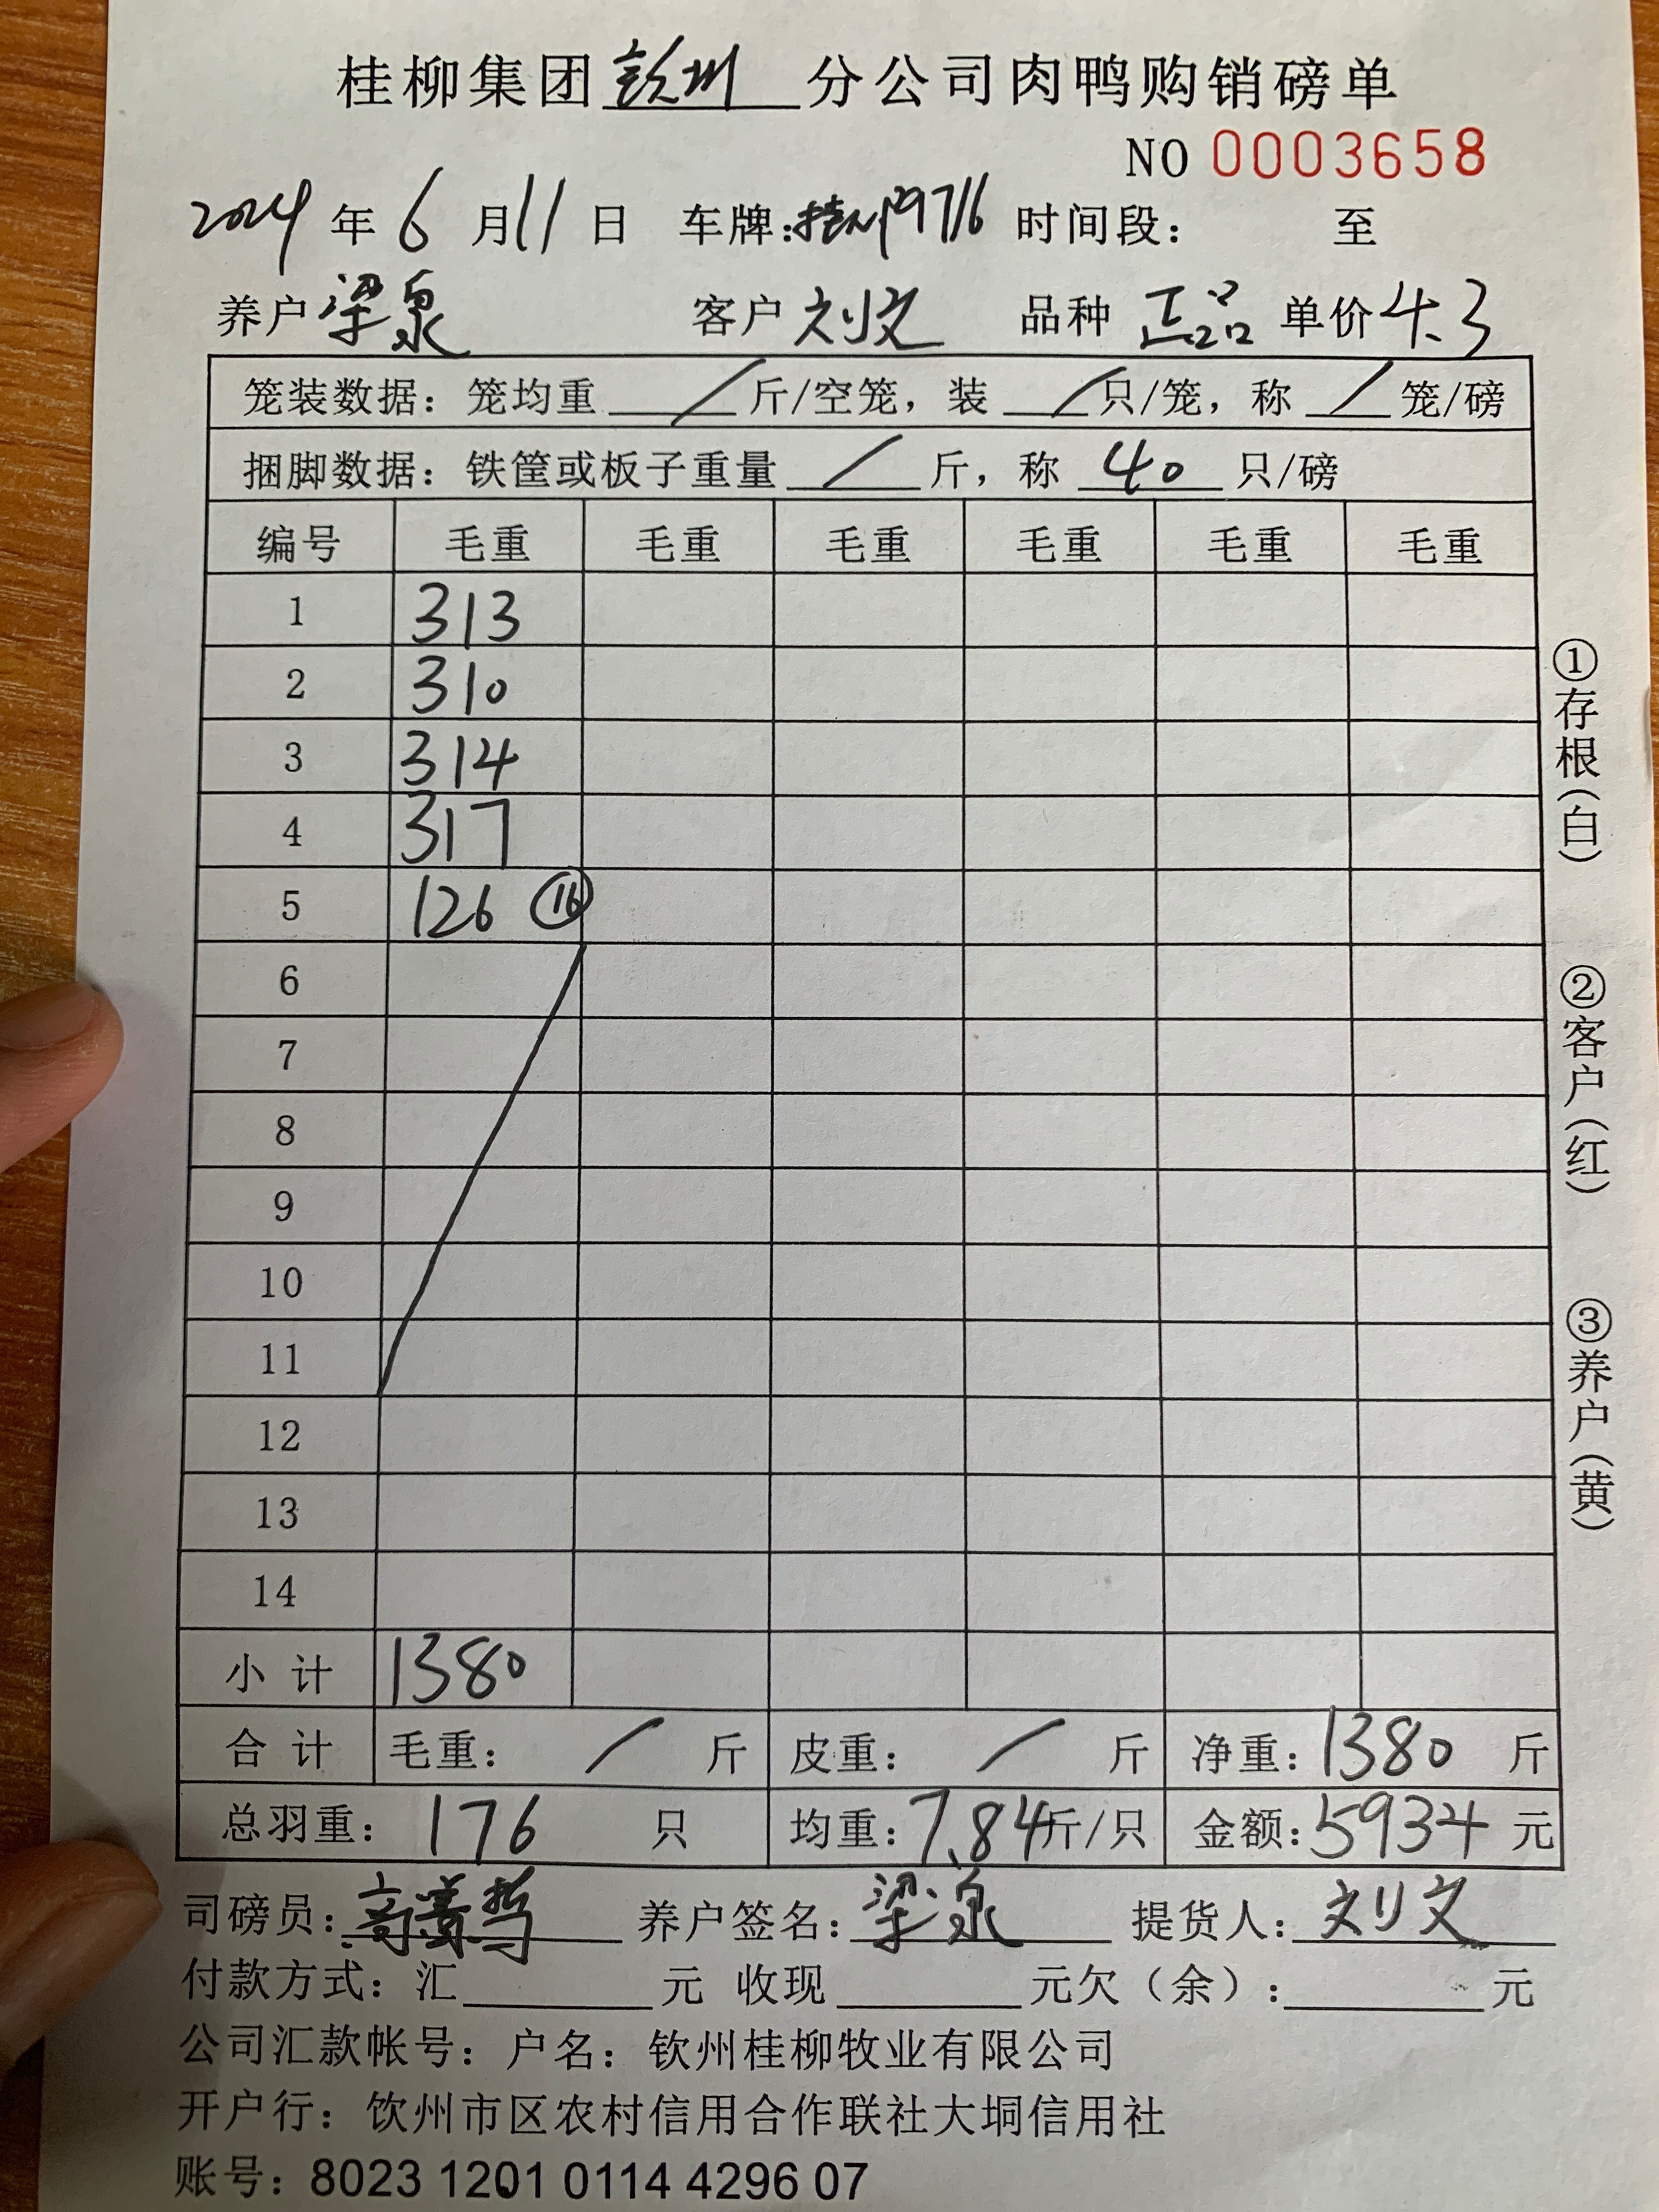 桂柳集团 钦州 分公司肉鸭购销磅单
NO 0003658
2024 年 6 月 11 日 车牌: 9716 时间段: 至
养户 梁泉 客户 刘文 品种 正品 单价 4.3
笼装数据：笼均重 / 斤/空笼，装 / 只/笼，称 / 笼/磅
捆脚数据：铁筐或板子重量 / 斤，称 40 只/磅
编号 毛重 毛重 毛重 毛重 毛重 毛重
1 313
2 310
3 314
4 317
5 126 ⑯
6
7
8
9
10
11
12
13
14
小计 1380
合计 毛重： / 斤 皮重： / 斤 净重：1380 斤
总羽重： 176 只 均重：7.84斤/只 金额：5934 元
司磅员： 养户签名：梁泉 提货人：刘文
付款方式：汇 元 收现 元欠（余）： 元
公司汇款帐号：户名：钦州桂柳牧业有限公司
开户行：饮州市区农村信用合作联社大垌信用社
账号：8023 1201 0114 4296 07
①存根（白）
②客户（红）
③养户（黄）